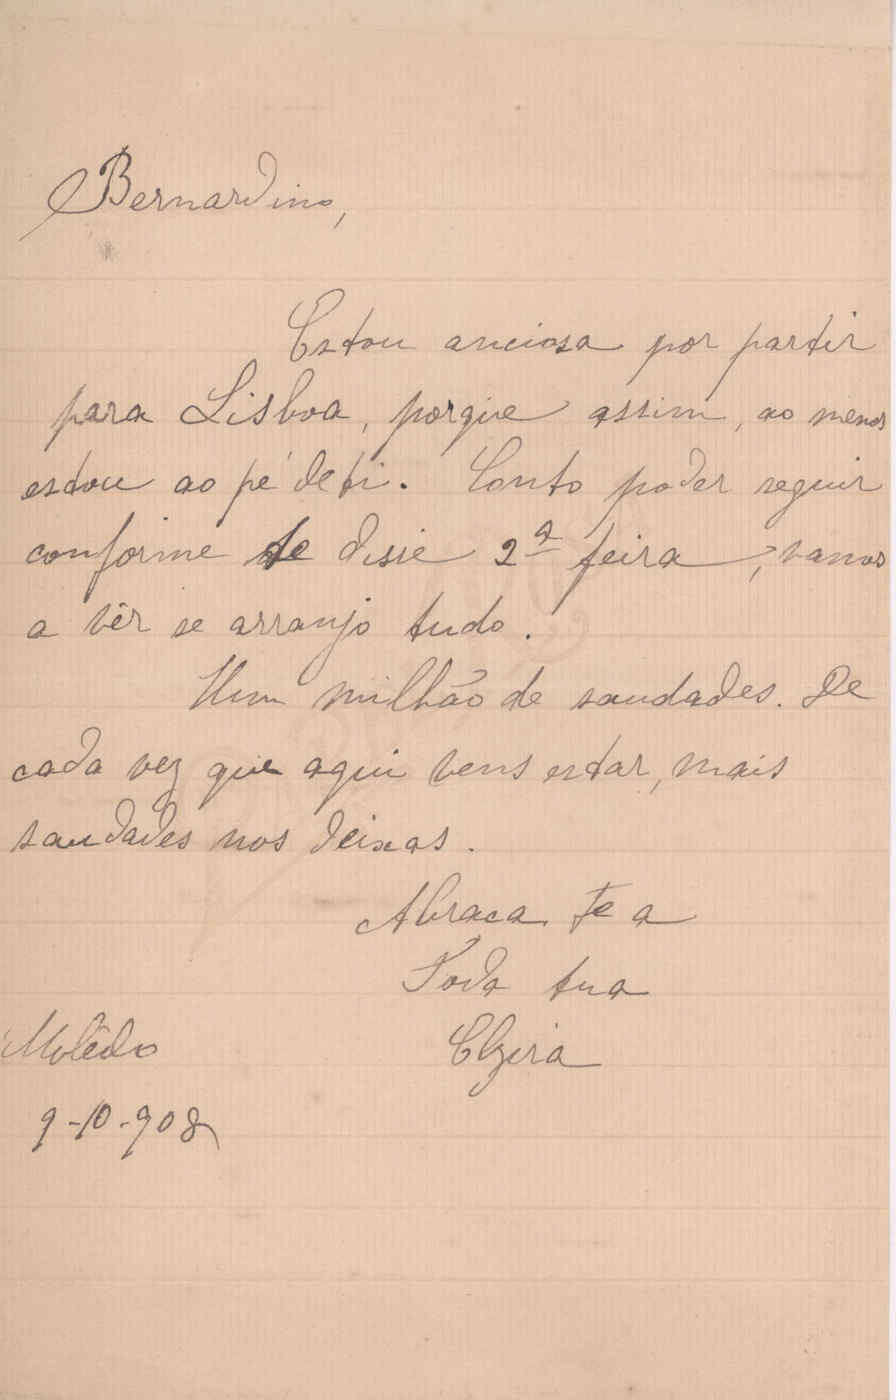 Bernardino,
Estou anciosa por partir
para Lisboa, porque assim, ao menos
estou ao pé de ti. Conto poder seguir
conforme te disse 2ª feira, vamos
a vêr se arranjo tudo.
Um milhão de saudades. De
cada vez que aqui vens estar, mais
saudades nos deixas.
Abraca te a
Toda tua
Elzira
Molêdo
9-10-908